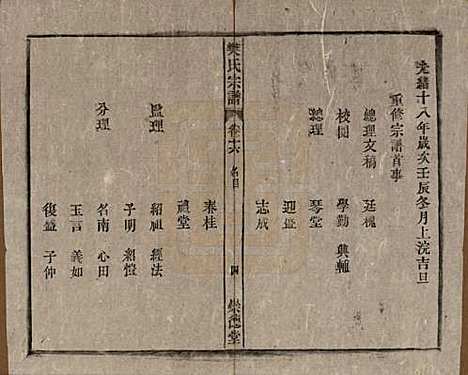 光緒十八年歲次壬辰冬月上浣吉旦
重修宗譜首事
總理文稿 廷槐
校閱 學勤 興輔
總理 琴堂
迎盛
志成
樊氏宗譜 卷十六 名目 四 崇德堂
春桂
蘭堂
監理 紹祖 經法
子明 紹愷
分理 名南 心田
玉言 義如
復盛 子仲